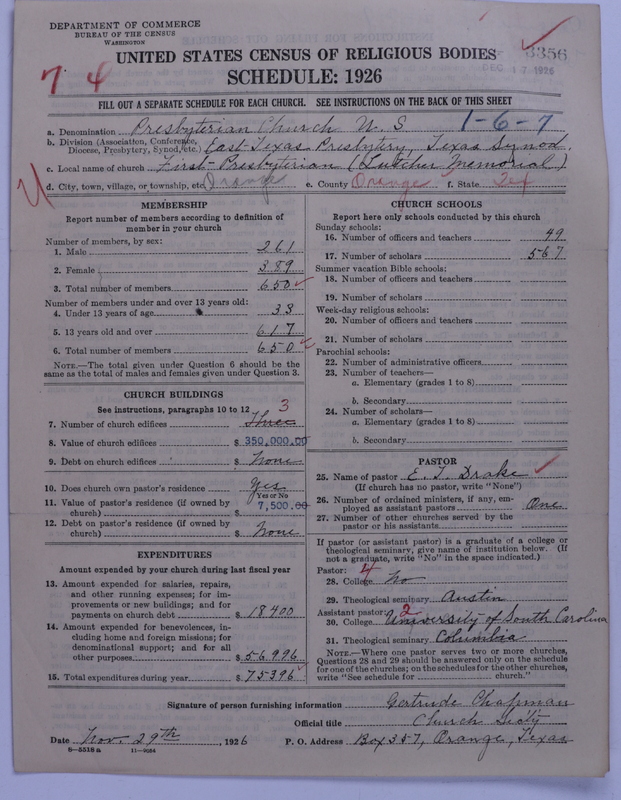 DEPARTMENT OF COMMERCE
BUREAU OF THE CENSUS
WASHINGTON
UNITED STATES CENSUS OF RELIGIOUS BODIES
3356
DEC 17 1926
SCHEDULE: 1926
7 4
FILL OUT A SEPARATE SCHEDULE FOR EACH CHURCH. SEE INSTRUCTIONS ON THE BACK OF THIS SHEET
1-6-7
a. Denomination Presbyterian Church U. S
b. Division (Association, Conference, Diocese, Presbytery, Synod, etc.) East Texas Presbytery, Texas Synod
c. Local name of church First Presbyterian (Lutcher Memorial)
d. City, town, village, or township, etc. Orange e. County Orange f. State Tex
U
MEMBERSHIP
Report number of members according to definition of
member in your church
Number of members, by sex:
1. Male 261
2. Female 389
3. Total number of members 650
Number of members under and over 13 years old:
4. Under 13 years of age 33
5. 13 years old and over 617
6. Total number of members 650
NOTE.—The total given under Question 6 should be
same as the total of males and females given under Question 3.
CHURCH BUILDINGS
See instructions, paragraphs 10 to 12 3
7. Number of church edifices Three
8. Value of church edifices $ 350,000.00
9. Debt on church edifices $ None
10. Does church own pastor's residence Yes
Yes or No
11. Value of pastor's residence (if owned by
church) $ 7,500.00
12. Debt on pastor's residence (if owned by
church) $ None
EXPENDITURES
Amount expended by your church during last fiscal year
13. Amount expended for salaries, repairs,
and other running expenses; for im-
provements or new buildings; and for
payments on church debt $ 18400
14. Amount expended for benevolences, in-
cluding home and foreign missions; for
denominational support; and for all
other purposes $ 56.996
15. Total expenditures during year $ 75396
CHURCH SCHOOLS
Report here only schools conducted by this church
Sunday schools:
16. Number of officers and teachers 49
17. Number of scholars 567
Summer vacation Bible schools:
18. Number of officers and teachers
19. Number of scholars
Week-day religious schools:
20. Number of officers and teachers
21. Number of scholars
Parochial schools:
22. Number of administrative officers
23. Number of teachers—
a. Elementary (grades 1 to 8)
b. Secondary
24. Number of scholars—
a. Elementary (grades 1 to 8)
b. Secondary
PASTOR
25. Name of pastor E. T. Drake
(If church has no pastor, write "None")
26. Number of ordained ministers, if any, em-
ployed as assistant pastors One
27. Number of other churches served by the
pastor or his assistants
If pastor (or assistant pastor) is a graduate of a college or
theological seminary, give name of institution below. (If
not a graduate, write "No" in the space indicated.)
Pastor: 4
28. College No
29. Theological seminary Austin
Assistant pastor: 2
30. College University of South Carolina
31. Theological seminary Columbia
NOTE.—Where one pastor serves two or more churches,
Questions 28 and 29 should be answered only on the schedule
for one of the churches; on the schedules for the other churches,
write "See schedule for church."
Signature of person furnishing information Gertrude Chapman
Official title Church Secty
Date Nov. 29th, 1926 P. O. Address Box 357, Orange, Texas
6—5518 a 11—9064